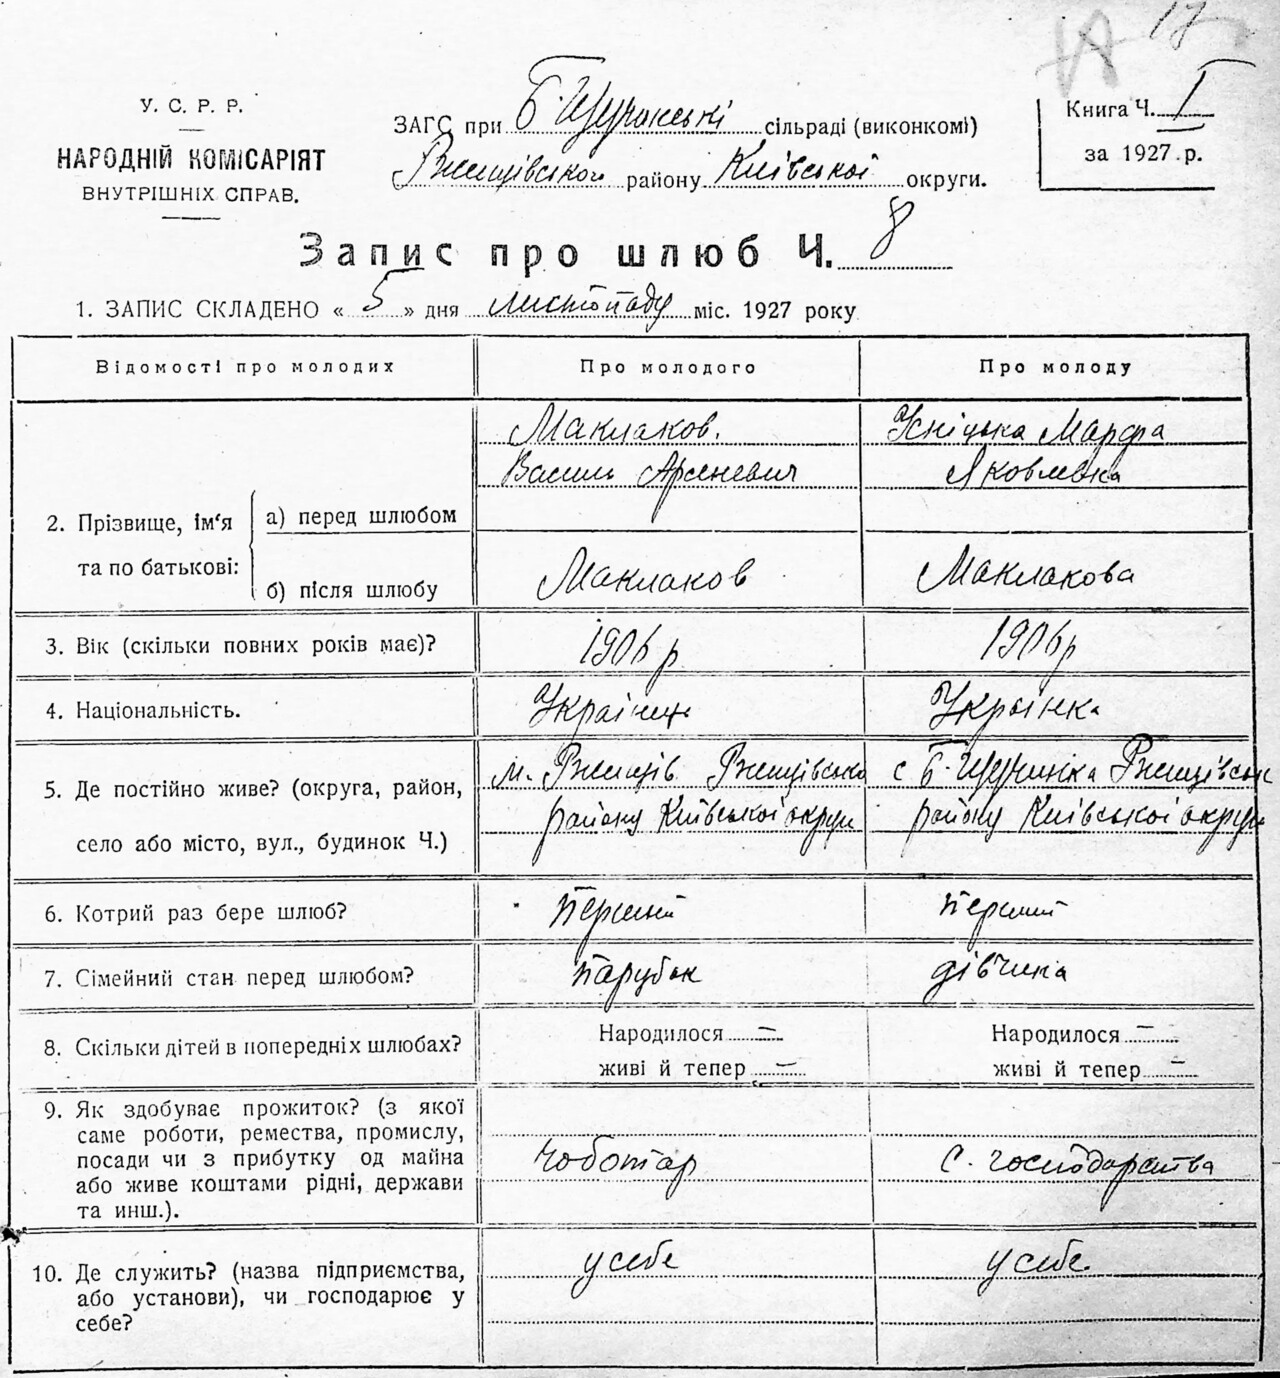 17
У. С. Р. Р.
НАРОДНІЙ КОМІСАРІЯТ
ВНУТРІШНІХ СПРАВ.
ЗАГС при Б Щучинські сільраді (виконкомі)
Ржищівського району Київської округи.
Книга Ч. I
за 1927 р.
Запис про шлюб Ч. 8
1. ЗАПИС СКЛАДЕНО « 5 » дня листопаду міс. 1927 року
Відомості про молодих Про молодого Про молоду
Маклаков. Марфа
Василь Арсеневич Яковлевна
2. Прізвище, ім'я та по батькові:
а) перед шлюбом
б) після шлюбу Маклаков Маклакова
3. Вік (скільки повних років має)? 1906 р 1906 р
4. Національність. Українець Українка
5. Де постійно живе? (округа, район, м. Ржищів Ржищівсько с Б-Щучинка Ржищівськ
село або місто, вул., будинок Ч.) району Київської округи району Київської округи
6. Котрий раз бере шлюб? перший перший
7. Сімейний стан перед шлюбом? парубок дівчина
8. Скільки дітей в попередніх шлюбах? Народилося — Народилося —
живі й тепер — живі й тепер —
9. Як здобуває прожиток? (з якої
саме роботи, ремества, промислу,
посади чи з прибутку од майна чоботар с. господарства
або живе коштами рідні, держави
та инш.).
10. Де служить? (назва підприємства, у себе у себе
або установи), чи господарює у
себе?